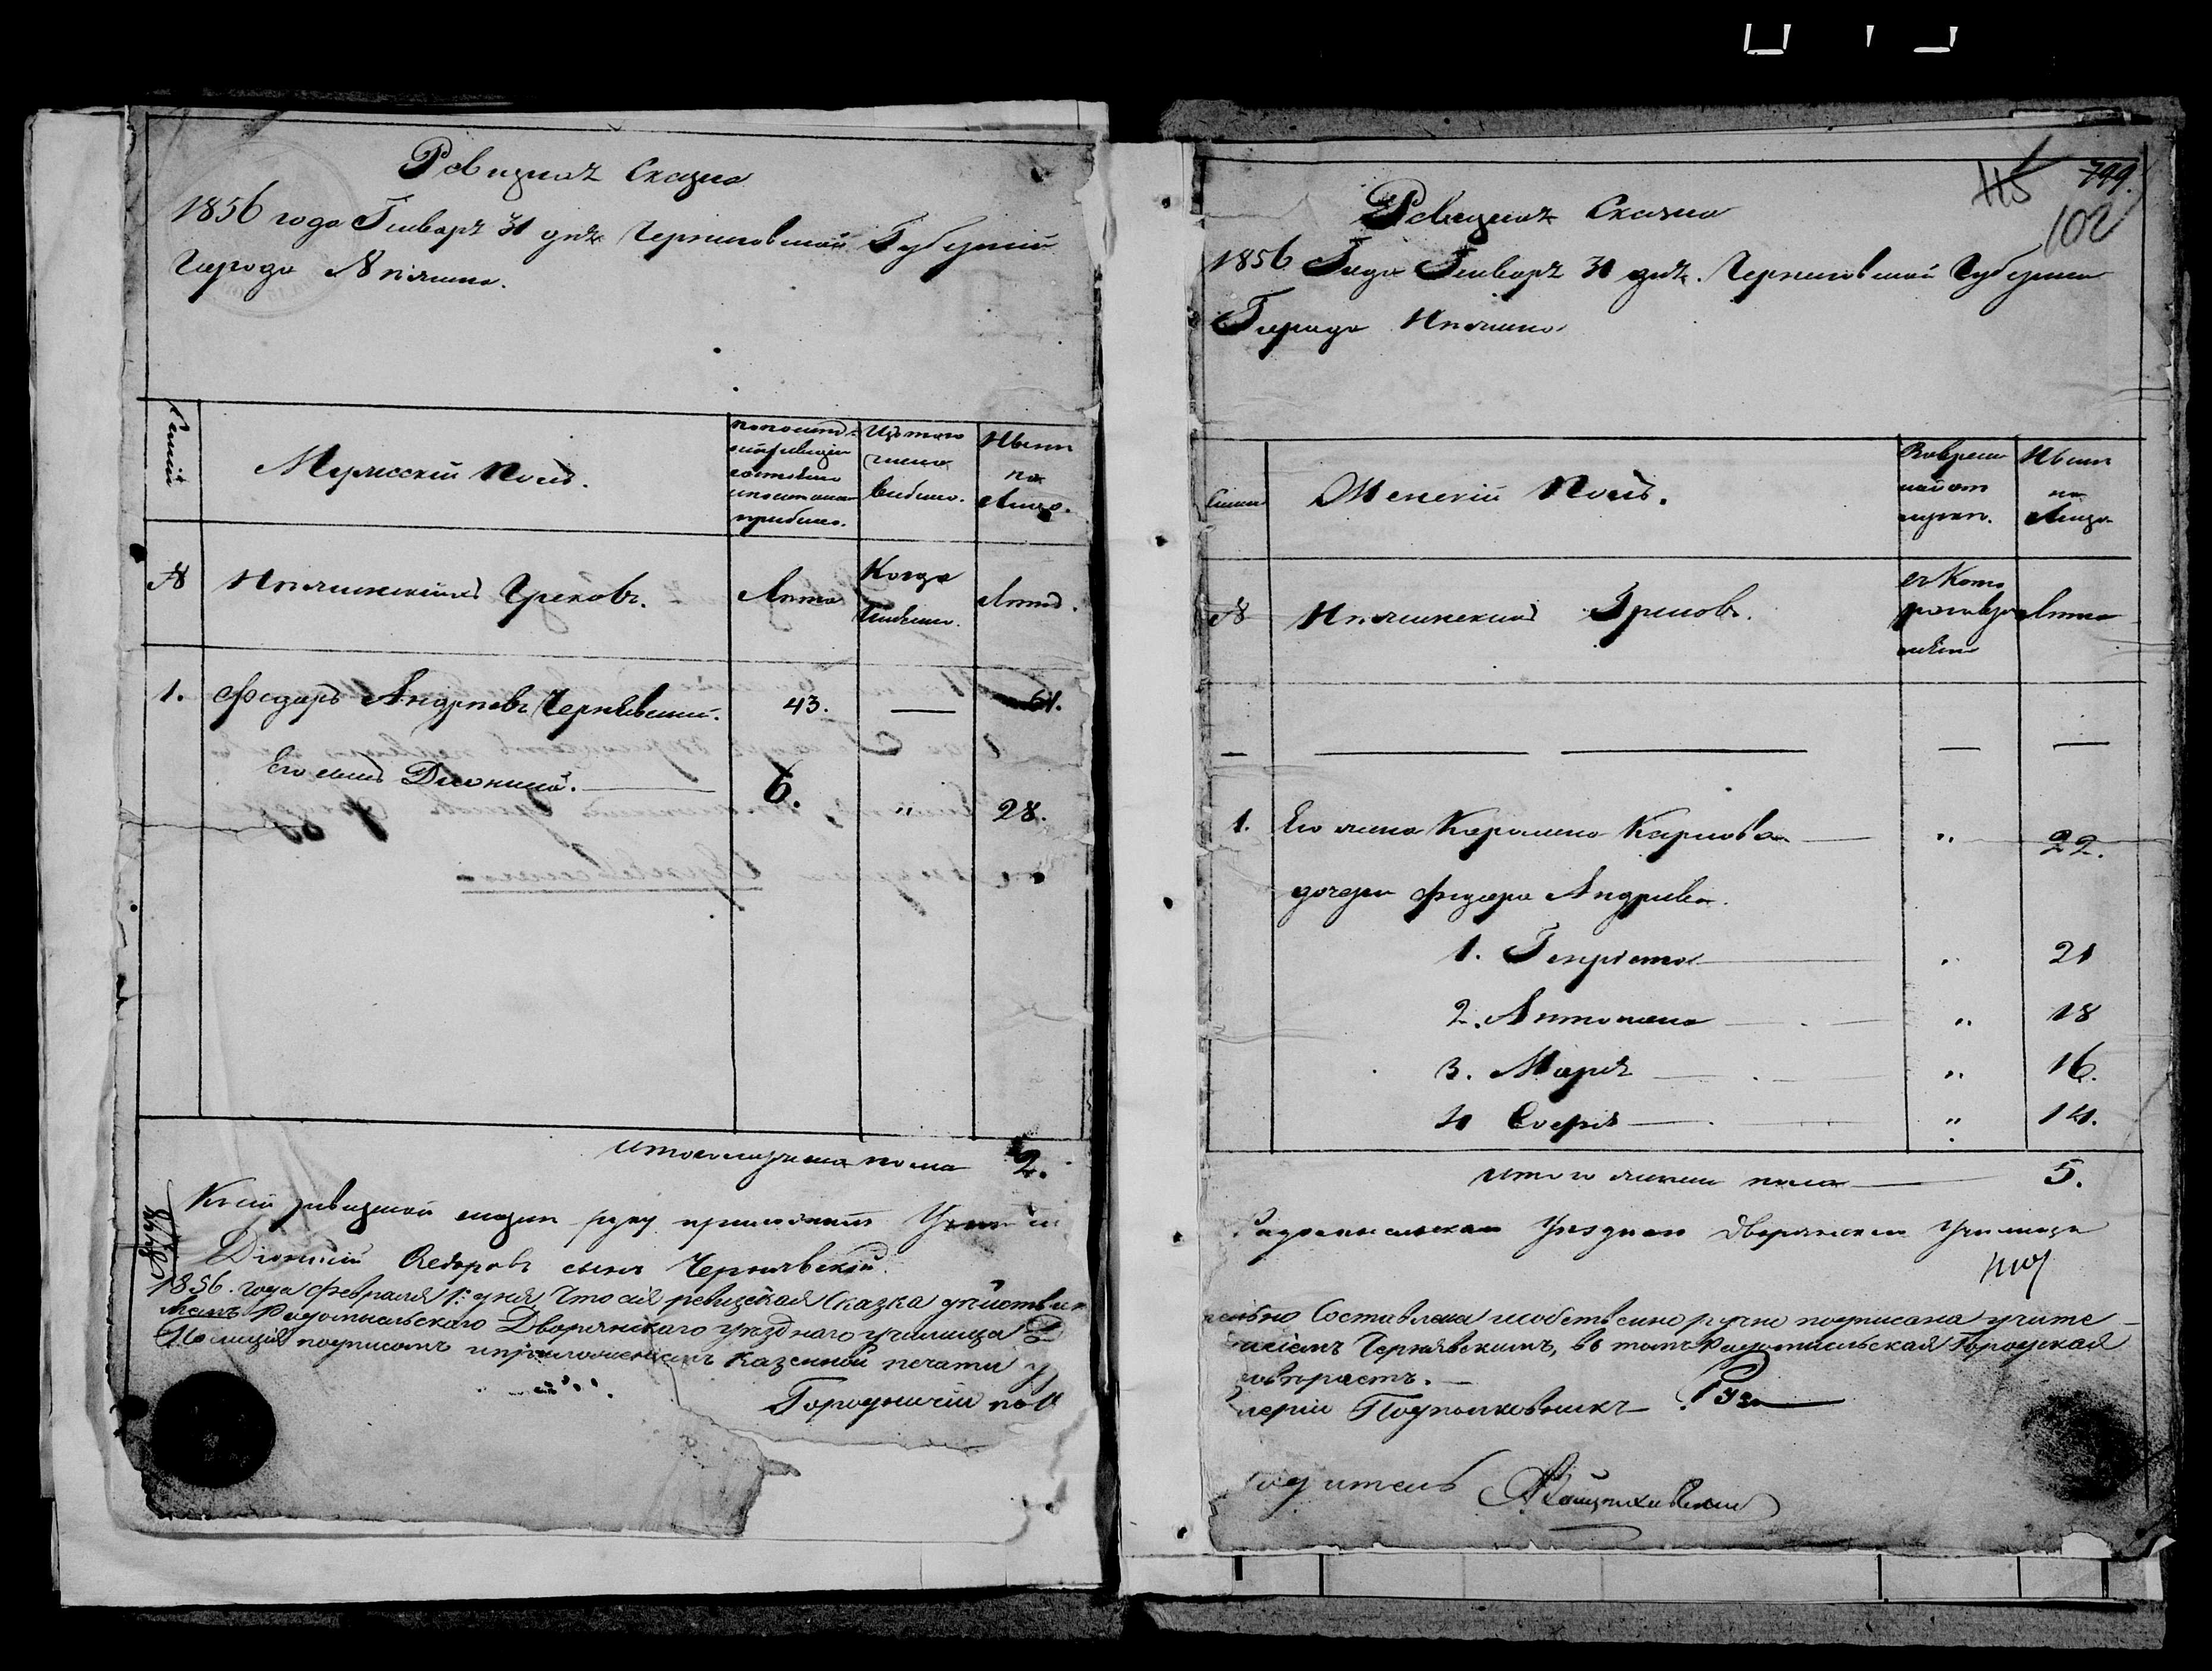 Ревизкая Сказка
1856 года Генваря 31 дня Черниговской Губернии
Города Нѣжина.
Семьи
Мужескій полъ.
По последней ревизіи состояло и после того прибыло.
Изъ того числа выбыло.
Нынѣ на Лицо.
№
Нѣжинскихъ Грековъ.
Лѣта
Когда Имянно.
Лѣта.
1. Федоръ Андреевъ Чернявский. 43. — 61.
Его сынъ Дионисий. 6. " 28.
Итого мужеска пола 2.
К сей ревизской сказки руку приложилъ Учитель
Діонисій Ѳедоровъ сынъ Чернявскій.
1856. года Февраля 1: дня Что сія ревизская Сказка дѣйстви
лемъ Радомысльскаго Дворянскаго уѣзднаго училища Д
Полиція подписомъ и приложеніемъ казенной печати у
Городничій
799.
115
102
Ревизкая Сказка
1856 Года Генваря 31 дня. Черниговской Губернии
Города Нѣжина
Семьи
Женскій Полъ.
Во временной отлучке.
Нынѣ на Лицо
№
Нѣжинскихъ Грековъ.
съ Которого времени
Лѣта
— — — — —
1. Его жена Каролина Карлова — " 22.
дочери Федора Андреева.
1. Генріета — " 21
2. Антонина — " 18
3. Марія — " 16.
4 Софія — " 14.
Итого женска пола — 5.
Радомысльскаго Уезднаго Дворянскаго Училища
тельно Составлена и собственно ручно подписана учите
нисіемъ Чернявскимъ, въ томъ Радомысльская Городская
Подполковникъ